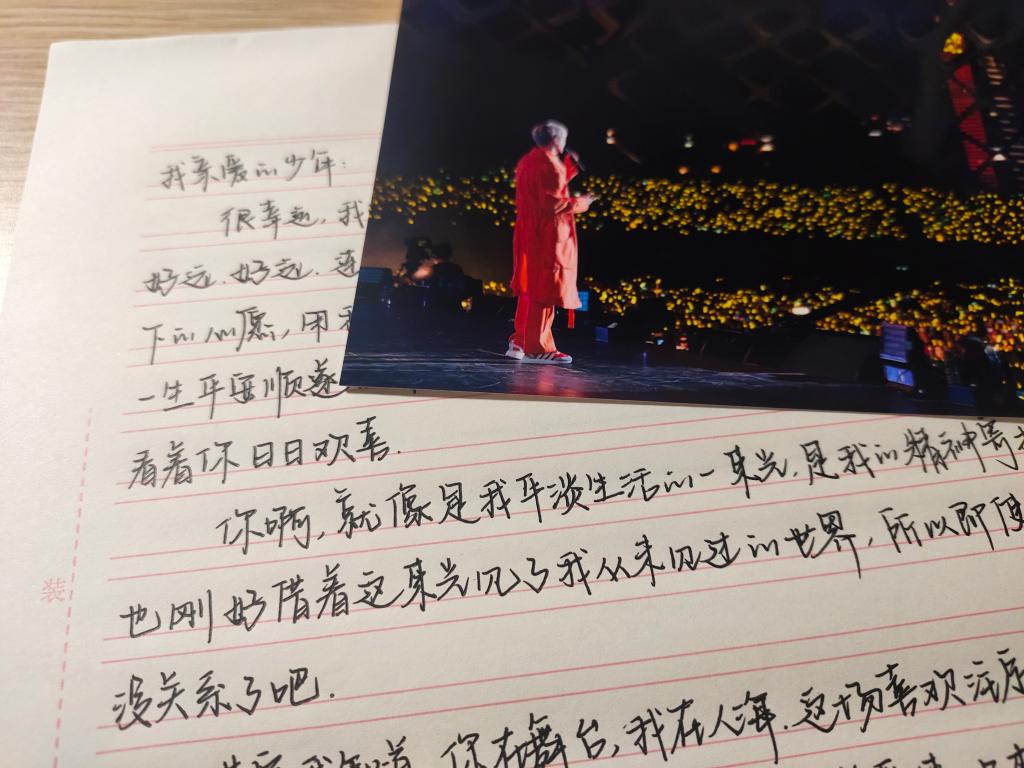 我亲爱的少年：
很幸运，我
好远，好远，连
下的心愿，用我
一生平安顺遂
看着你日日欢喜.
你啊，就像是我平淡生活的一束光，是我的精神寄
也刚好借着这束光见了我从未见过的世界，所以即便
装
没关系了吧.
我知道，你在舞台，我在人海，这场喜欢注定